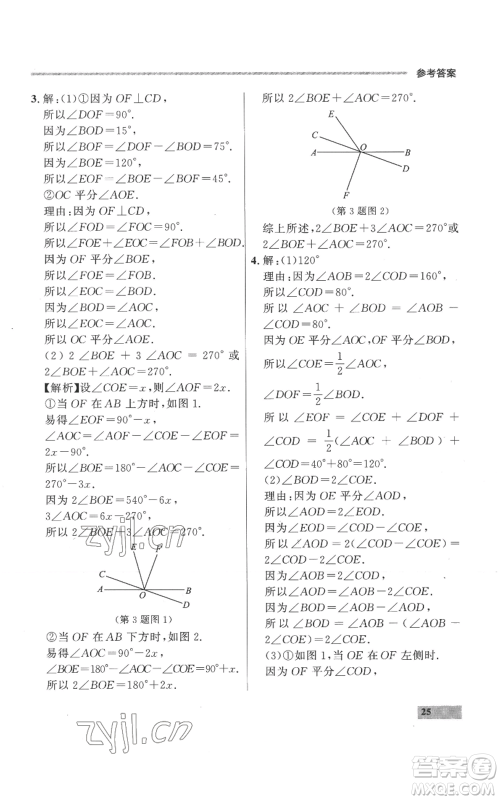 参考答案
3. 解：(1)①因为 OF⊥CD，
所以∠DOF=90°.
因为∠BOD=15°，
所以∠BOF=∠DOF－∠BOD=75°.
因为∠BOE=120°，
所以∠EOF=∠BOE－∠BOF=45°.
②OC 平分∠AOE.
理由：因为 OF⊥CD，
所以∠DOF=∠COF=90°.
所以∠FOE+∠COE=∠FOB+∠BOD.
因为 OF 平分∠BOE，
所以∠FOE=∠FOB.
所以∠COE=∠BOD.
因为∠BOD=∠AOC，
所以∠COE=∠AOC.
所以 OC 平分∠AOE.
(2) 2 ∠BOE + 3 ∠AOC = 270° 或
2∠BOE+∠AOC=270°.
【解析】设∠COE=x，则∠AOF=2x.
①当 OF 在 AB 上方时，如图 1.
易得∠EOF=90°－x，
∠AOC=∠AOF－∠COE－∠EOF=
2x－90°.
所以∠BOE=180°－∠AOC－∠COE=
270°－3x.
因为 2∠BOE=540°－6x，
3∠AOC=6x－270°，
所以 2∠BOE+3∠AOC=270°.
E F
C
A O B
D
(第 3 题图 1)
②当 OF 在 AB 下方时，如图 2.
易得∠AOC=90°－2x，
∠BOE=180°－∠AOC－∠COE=90°+x.
所以 2∠BOE=180°+2x.
所以 2∠BOE+∠AOC=270°.
E
C
A O B
D
F
(第 3 题图 2)
综上所述，2∠BOE+3∠AOC=270°或
2∠BOE+∠AOC=270°.
4. 解：(1)120°
理由：因为∠AOB=2∠COD=160°，
所以∠COD=80°.
所以∠AOC + ∠BOD = ∠AOB －
∠COD=80°.
因为 OE 平分∠AOC，OF 平分∠BOD，
所以∠COE=1/2∠AOC，
∠DOF=1/2∠BOD.
所以 ∠EOF = ∠COE + ∠DOF +
∠COD = 1/2(∠AOC + ∠BOD) +
∠COD=40°+80°=120°.
(2)∠AOB=2∠COE.
理由：因为 OE 平分∠AOD，
所以∠AOD=2∠EOD.
因为∠EOD=∠COD－∠COE，
所以∠AOD=2(∠COD－∠COE)=
2∠COD－2∠COE.
因为∠AOB=2∠COD，
所以∠AOD=∠AOB－2∠COE.
因为∠AOD=∠AOB－∠BOD，
所以∠BOD=2∠COE.
(3)①如图 1，当 OE 在 OF 左侧时.
25
zyjl.cn
zyjl.cn